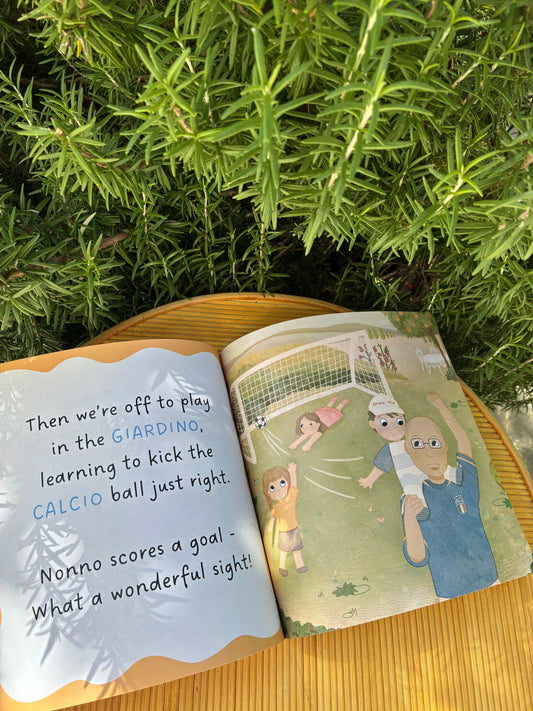 Then we're off to play
in the GIARDINO,
learning to kick the
CALCIO ball just right.
Nonno scores a goal -
What a wonderful sight!